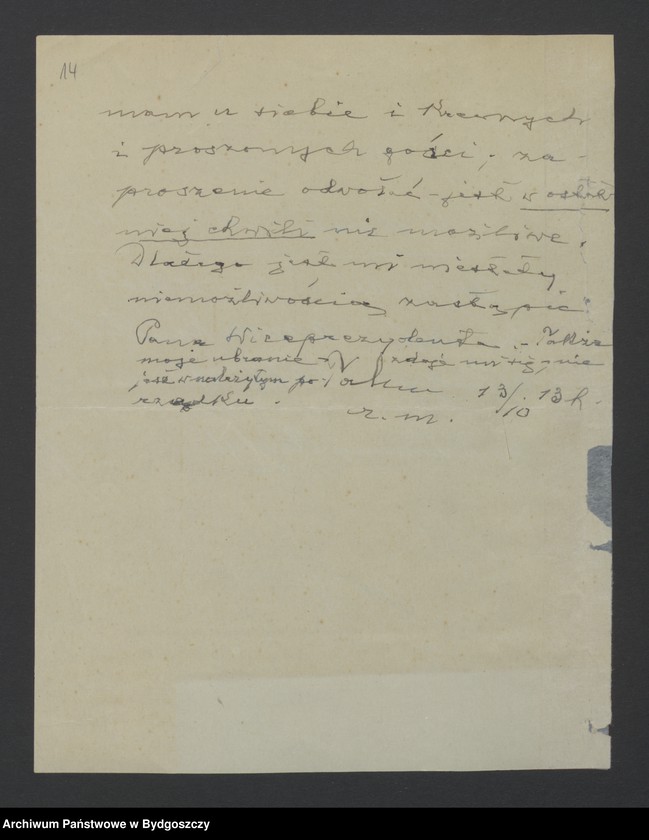 14
mam u siebie i Krewnych
i proszonych gości, za-
proszenie odwołać jest w ostat
niej chwili nie możliwe.
Dlatego jest mi niestety
niemożliwością zastąpić
Pana Wiceprezydenta. - Także
moje ubranie zdaje mi się, nie
jest w należytym po-
rządku.
13/10. 13 h.
r. m.
Archiwum Państwowe w Bydgoszczy